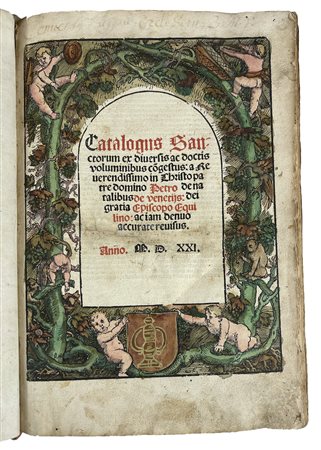 Catalogus San-
ctorum ex diversis ac doctis
voluminibus cõgestus: a Re
verendissimo in Christo pa
tre domino Petro de na
talibus de venetijs: dei
gratia Episcopo Equi
lino: ac iam denuo
accurate revisus.
Anno. M. D. XXI.